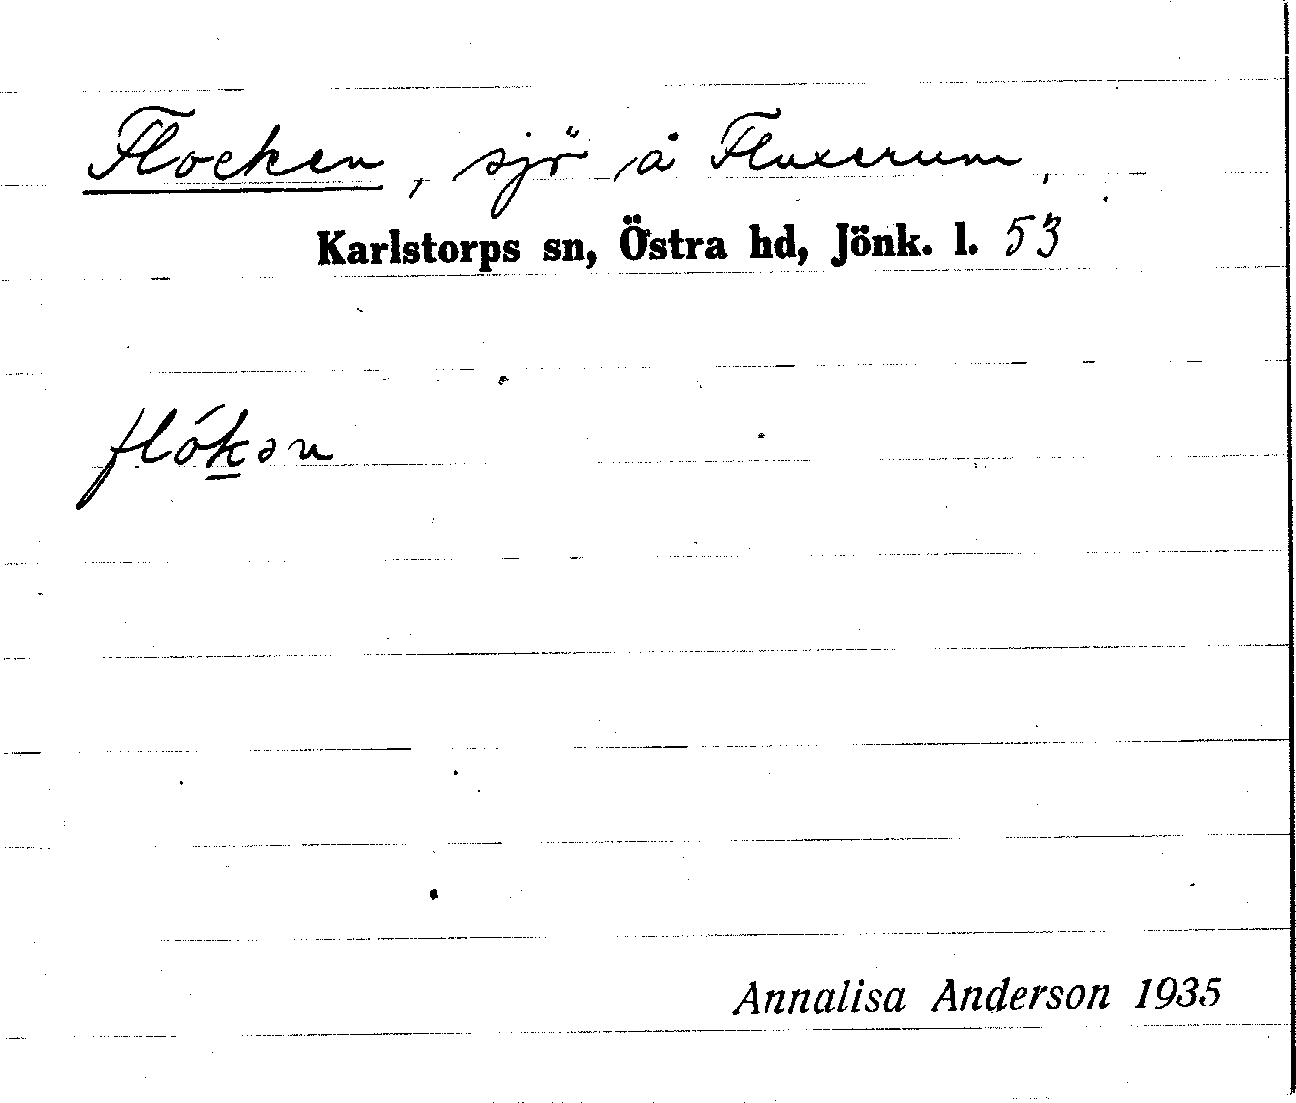 Flocken, sjö å Fluxerum,
Karlstorps sn, Östra hd, Jönk. l. 53
flók̲ən
Annalisa Anderson 1935